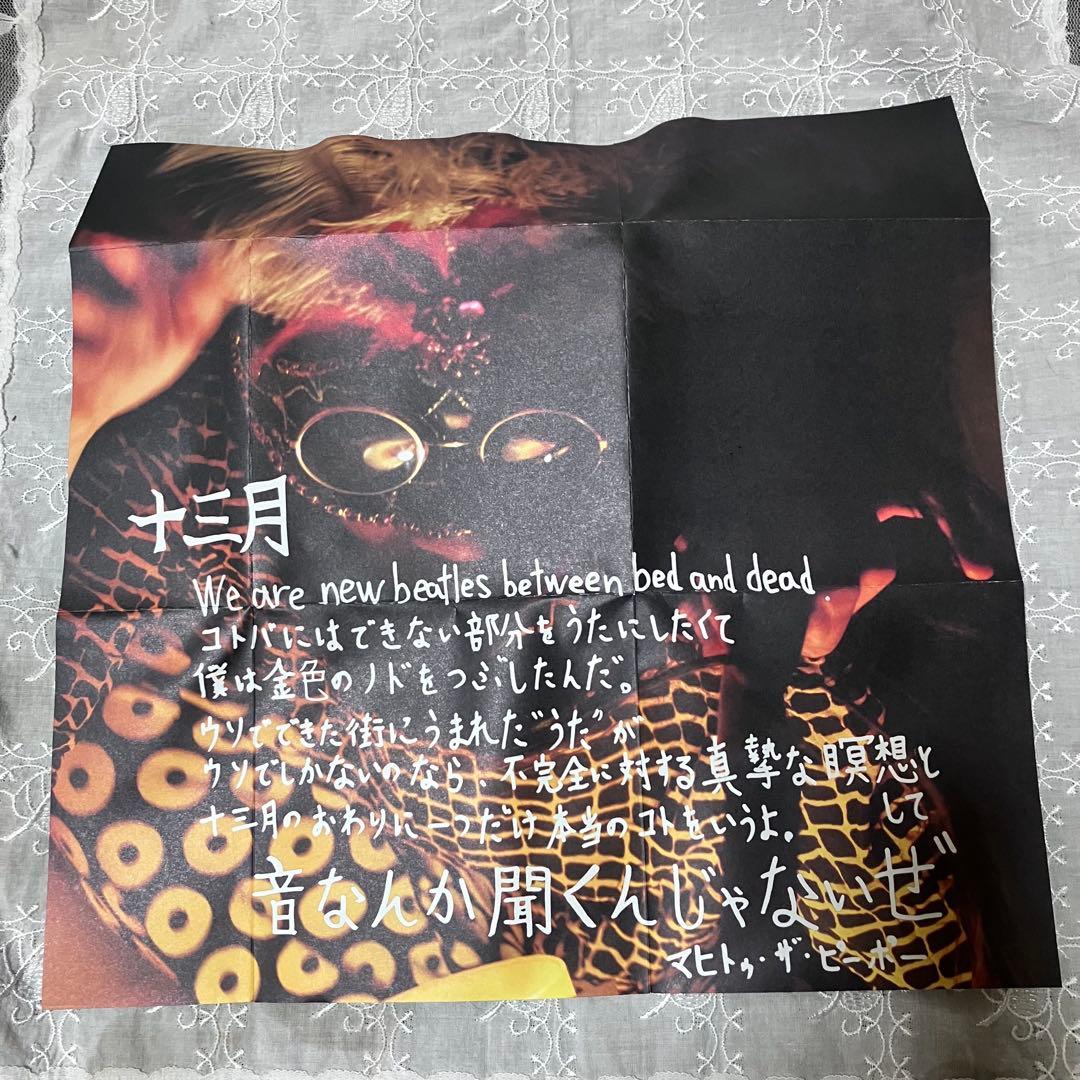 十三月
We are new beatles between bed and dead.
コトバにはできない部分をうたにしたくて
僕は金色のノドをつぶしたんだ。
ウソでできた街にうまれた"うた"が
ウソでしかないのなら、不完全に対する真摯な瞑想と
して
十三月のおわりに一つだけ本当のコトをいうよ。
音なんか聞くんじゃないぜ
マヒトゥ・ザ・ピーポー